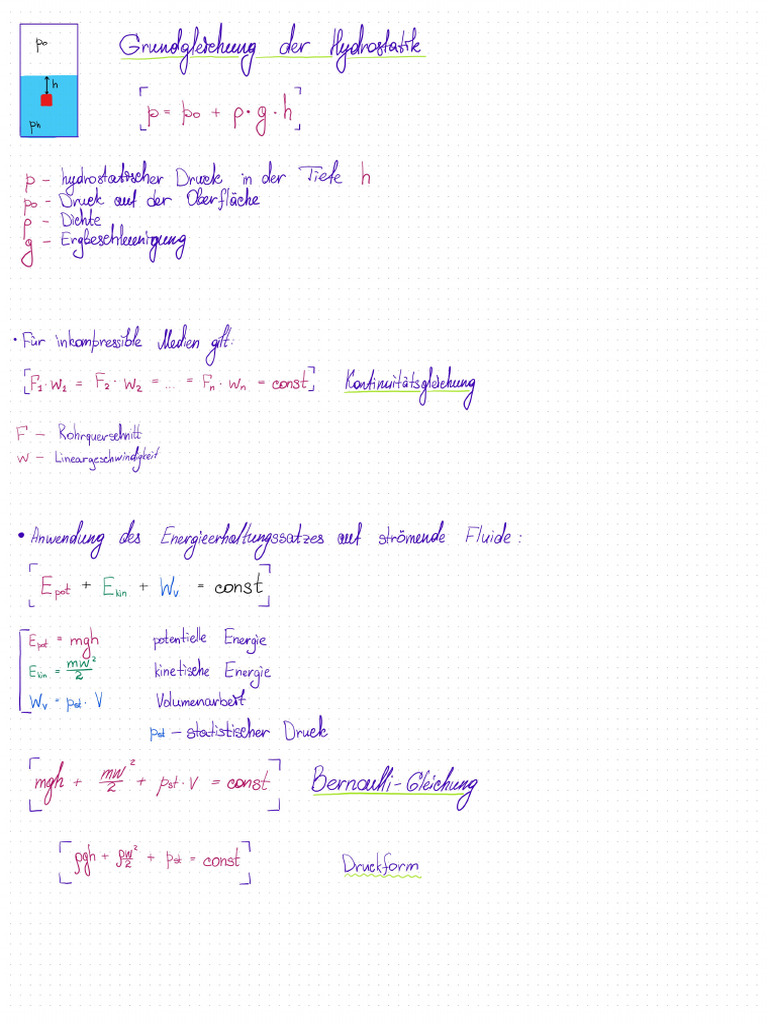 p₀
h
pₕ
Grundgleichung der Hydrostatik
[p = p₀ + ρ · g · h]
p – hydrostatischer Druck in der Tiefe h
p₀ – Druck auf der Oberfläche
ρ – Dichte
g – Ergbeschleunigung
· Für inkompressible Medien gilt:
[F₁ · w₁ = F₂ · w₂ = ... = Fₙ · wₙ = const] Kontinuitätsgleichung
F – Rohrquerschnitt
w – Lineargeschwindigkeit
• Anwendung des Energieerhaltungssatzes auf strömende Fluide:
[E_pot + E_kin + W_v = const]
E_pot = mgh potentielle Energie
E_kin = mw²/2 kinetische Energie
W_v = p_st · V Volumenarbeit
p_st – statistischer Druck
[mgh + mw²/2 + p_st · V = const] Bernoulli-Gleichung
[ρgh + ρw²/2 + p_st = const] Druckform